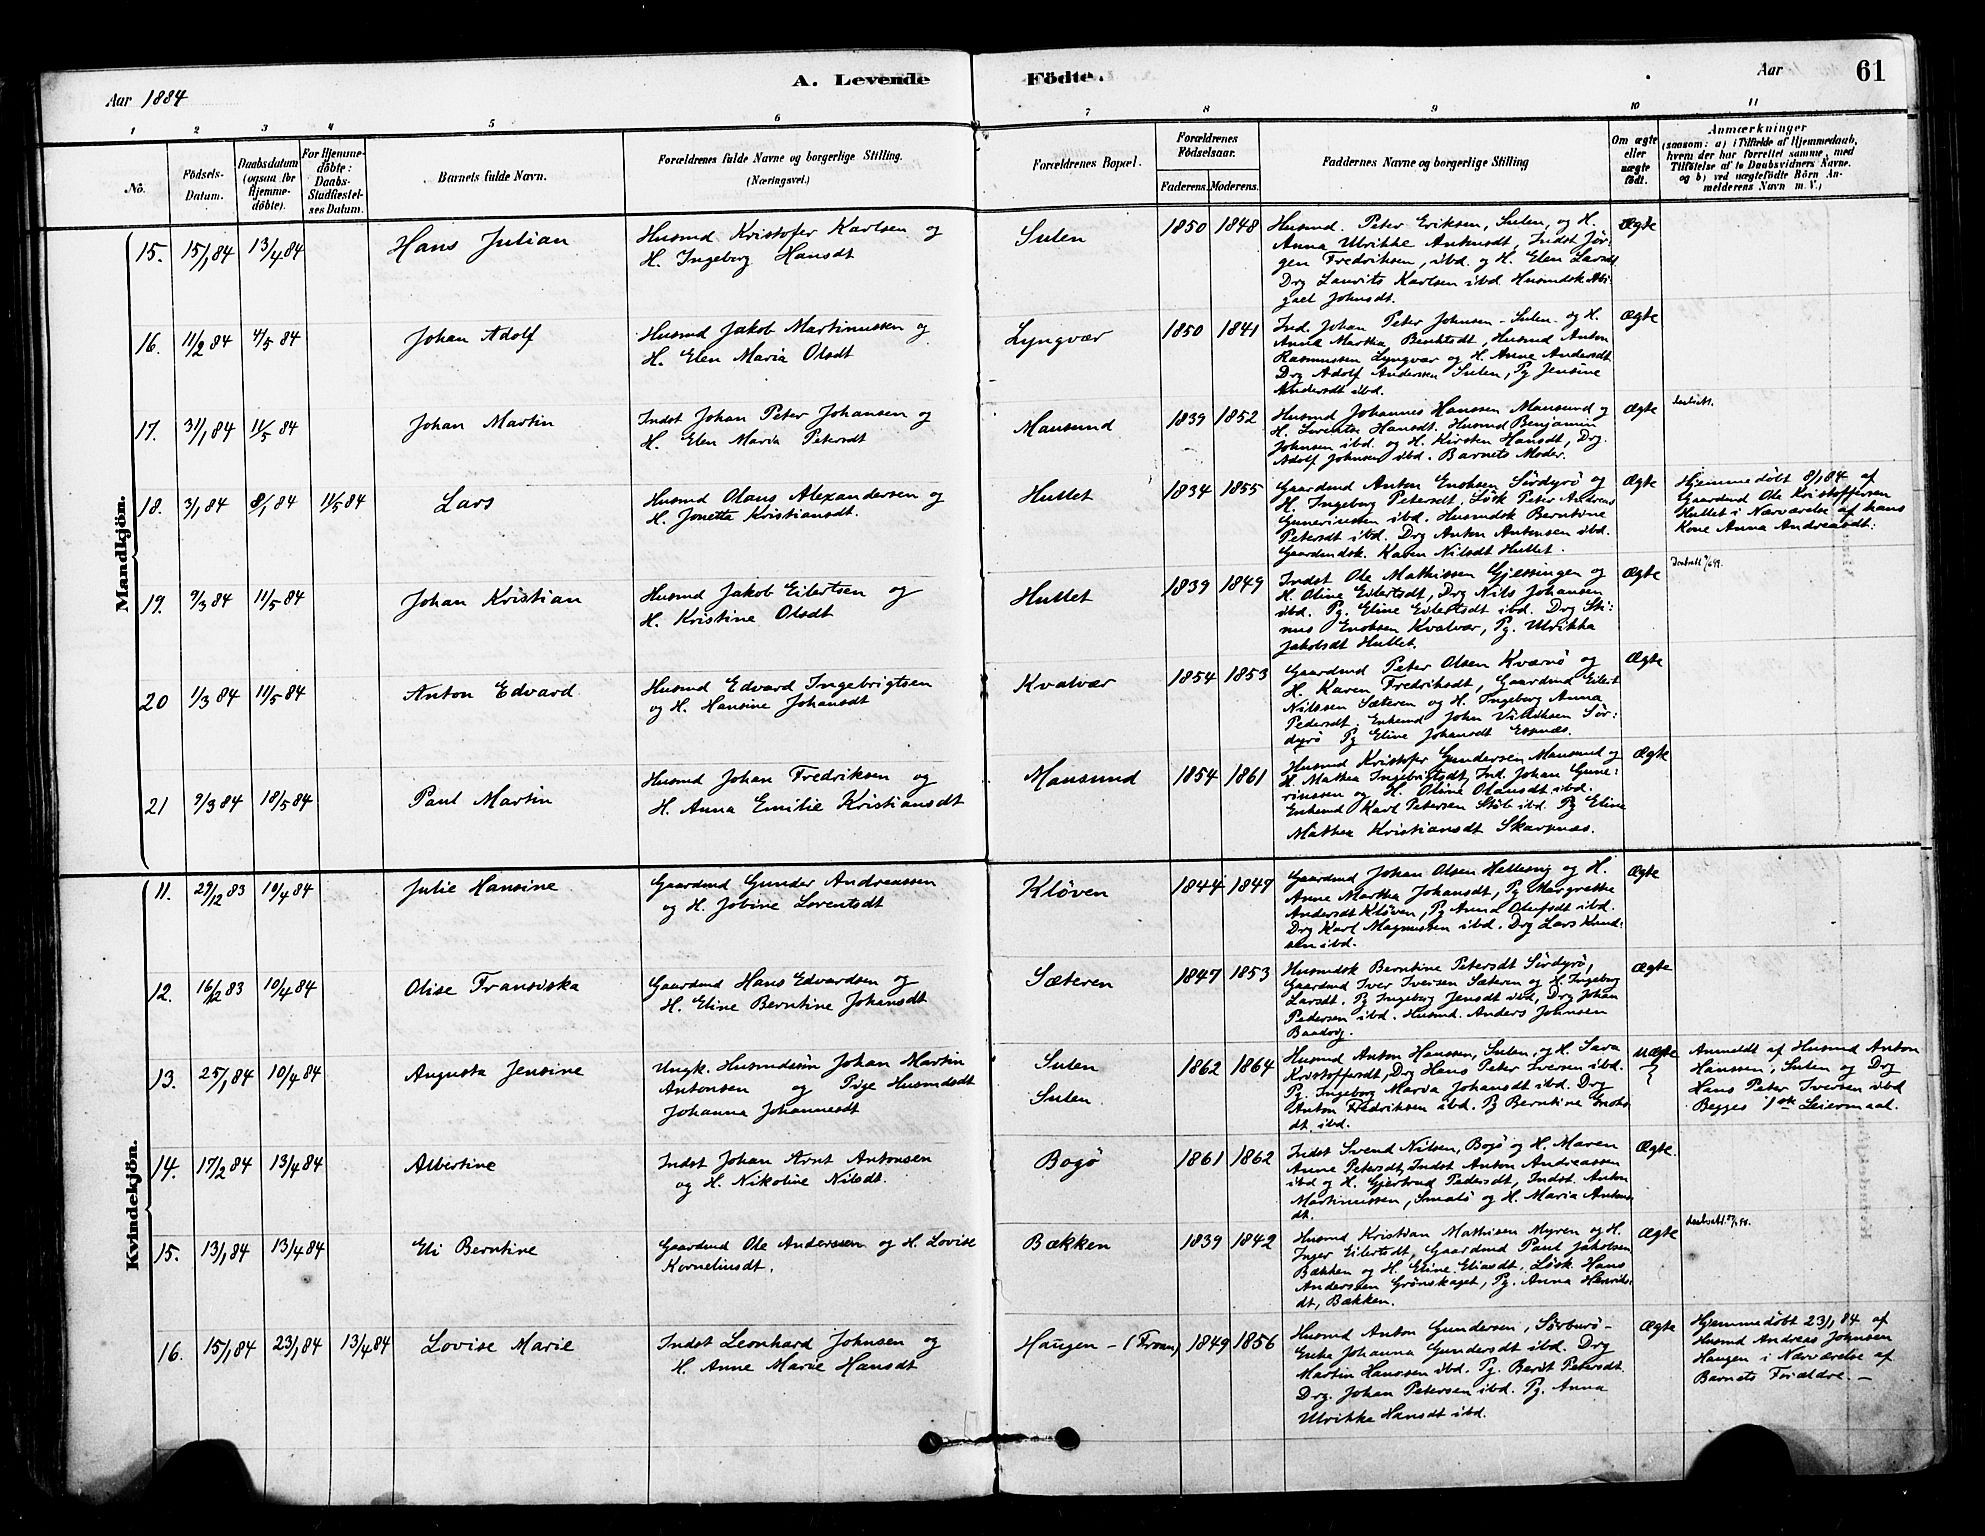 Aar 1884
A. Levende Födte.
Aar
61
1 2 3 4 5 6 7 8 9 10 11
No.
Födsels-
Datum.
Daabsdatum
(ogsaa for
Hjemme-
döbte).
For Hjemme-
döbte:
Daabs-
Stadfæstel-
ses Datum.
Barnets fulde Navn.
Forældrenes fulde Navne og borgerlige Stilling.
(Næringsvei.)
Forældrenes Bopæl.
Forældrenes
Födselsaar.
Faderens. Moderens.
Faddernes Navne og borgerlige Stilling
Om ægte
eller
uægte
födt.
Anmærkninger
(saasom: a) i Tilfælde af Hjemmedaab,
hvem der har forrettet samme, med
Tilföielse af to Daabsvidners Navne.
og b) ved uægtefödte Börn An-
melderens Navn m. V.)
Mandkjön.
15. 15/1 84 13/4 84
Hans Julian
Husmd Kristofer Karlsen og
H. Ingeborg Hansdt
Sulen
1850 1848
Husmd. Peter Eriksen, Sulen, og H.
Anna Ulrikke Antonsdt, Indst Jör-
gen Fredriksen, ibd. og H. Elen Larsdt
Drg Laurits Karlsen ibd. Husmdsk Abi-
gael Johnsdt.
Ægte
16. 11/2 84 4/5 84
Johan Adolf
Husmd Jakob Martinussen og
H. Elen Maria Olsdt
Lyngvær
1850 1841
Ind. Johan Peter Johnsen - Sulen - og H.
Anna Martha Berntsdt, Husmd Anton
Rasmussen Lyngvær og H. Anne Andersdt
Drg Adolf Andersen Sulen, Pg Jensine
Andersdt ibd.
Ægte
17. 31/1 84 11/5 84
Johan Martin
Indst Johan Peter Johansen og
H. Elen Maria Petersdt
Mausund
1839 1852
Husmd Johannes Hanssen Mausund og
H. Hansdt. Husmd Benjamin
Johnsen ibd. og H. Kirsten Hansdt, Drg.
Adolf Johnsen ibd. Barnets Moder.
Ægte
18. 3/1 84 8/1 84 11/5 84
Lars
Husmd Olaus Alexandersen og
H. Jonetta Kristiansdt.
Hullet
1834 1855
Gaardmd Anton Enoksen Sördyrö og
H. Ingeborg Petersdt, Lösk Peter Andreas
Gunerinsen ibd. Husmdsk Berntine
Petersdt ibd. Drg Anton Antonsen ibd.
Gaardmdsk. Karen Nilsdt Hullet.
Ægte
Hjemmedöbt 8/1 84 af
Gaardmd Ole Kristoffersen
Hullet i Nærværelse af hans
Kone Anna Andreasdt.
19. 9/3 84 11/5 84
Johan Kristian
Husmd Jakob Eilertsen og
H. Kristine Olsdt
Hullet
1839 1849
Indst Ole Mathissen Gjessingen og
H. Oline Eilertsdt, Drg Nils Johansen
ibd. Pg. Eline Eilertsdt ibd. Drg Sti-
nus Enoksen Kvalvær, Pg. Ulrikka
Jakobsdt Hullet.
Ægte
20 1/3 84 11/5 84
Anton Edvard
Husmd Edvard Ingebrigtsen
og H. Hansine Johansdt
Kvalvær
1854 1853
Gaardmd Peter Olsen Kværnö og
H. Karen Fredriksdt, Gaardmd Eilert
Nilssen Sæteren og H. Ingeborg Anna
Pedersdt. Enkemd John Sör-
dyrö Pg Eline Johansdt Espnæs.
Ægte
21 9/3 84 18/5 84
Paul Martin
Husmd Johan Fredriksen og
H. Anna Emilie Kristiansdt
Mausund
1854 1861
Husmd Kristofer Gundersen Mausund og
H. Mathea Ingebrigtsdt, Ind. Johan Gune-
rinssen og H. Oline Olausdt ibd.
Enkemd Karl Petersen Stöb ibd. Pg Eline
Mathea Kristiansdt Skarpnæs.
Ægte
Kvindekjön.
11. 29/12 83 10/4 84
Julie Hansine
Gaardmd Gunder Andreassen
og H. Jobine Lorentsdt
Klöven
1844 1847
Gaardmd Johan Olsen Hellesvig og H.
Anne Martha Johansdt, Pg Margrethe
Andersdt Klöven, Pg Anna Olufsdt ibd.
Drg Karl Magnussen ibd. Drg Lars Knud-
sen ibd.
Ægte
12. 16/12 83 10/4 84
Olise Fransiska
Gaardmd Hans Edvardsen og
H. Eline Berntine Johansdt
Sæteren
1847 1853
Husmdsk Berntine Petersdt Sördyrö,
Gaardmd Iver Iversen Sæteren og H. Ingeborg
Larsdt. Pg Ingeborg Jensdt ibd, Drg Johan
Pedersen ibd. Husmd. Anders Johnsen
Ægte
13. 25/1 84 10/4 84
Augusta Jensine
Ungk. Husmdssön Johan Martin
Antonsen og Pige Husmdsdt
Johanna Johannesdt
Sulen
Sulen
1862 1864
Husmd Anton Hanssen, Sulen, og H. Sara
Kristoffersdt, Drg Hans Peter Iversen ibd.
Pg. Ingeborg Maria Johansdt ibd. Drg
Anton Fredriksen ibd. Pg Berntine Enoks-
dt. ibd.
Uægte
Anmeldt af Husmd Anton
Hanssen, Sulen og Drg
Hans Peter Iversen ibd
Begges 1ste Leiermaal.
14. 17/2 84 13/4 84
Albertine
Indst Johan Arnt Antonsen
og H. Nikoline Nilsdt.
Bogö
1861 1862
Indst Svend Nilsen, Bogö og H. Maren
Anne Petersdt, Indst Anton Andreassen
ibd og H. Gjertrud Pedersdt, Indst. Anton
Martinussen, Smalö og H. Maria Antons-
dt.
Ægte.
15. 13/1 84 13/4 84
Eli Berntine
Gaardmd Ole Anderssen og H. Lovise
Korneliusdt.
Bækken
1839 1842
Husmd Kristian Mathisen Myren og H.
Inger Eilertsdt, Gaardmd Paul Jakobsen
Bækken og H. Eline Eliasdt. Lösk Hans
Anderssen Grönskaget, Pg. Anna Henriks-
dt, Bækken.
Ægte
16. 15/1 84 23/1 84 13/4 84
Lovise Marie
Indst Leonhard Johnsen og
H. Anne Marie Hansdt
Haugen - (Froan)
1849 1856
Husmd Anton Gundersen, Sörburö -
Enke Johanna Gundersdt ibd. Drg
Martin Hanssen ibd. Pg. Berit Petersdt.
Drg. Johan Petersen ibd. Pg. Anna
Ulrikke Hansdt ibd.
Ægte
Hjemmedöbt 23/1 84 af
Husmd Andreas Johnsen
Haugen i Nærværelse af
Barnets Forældre. -